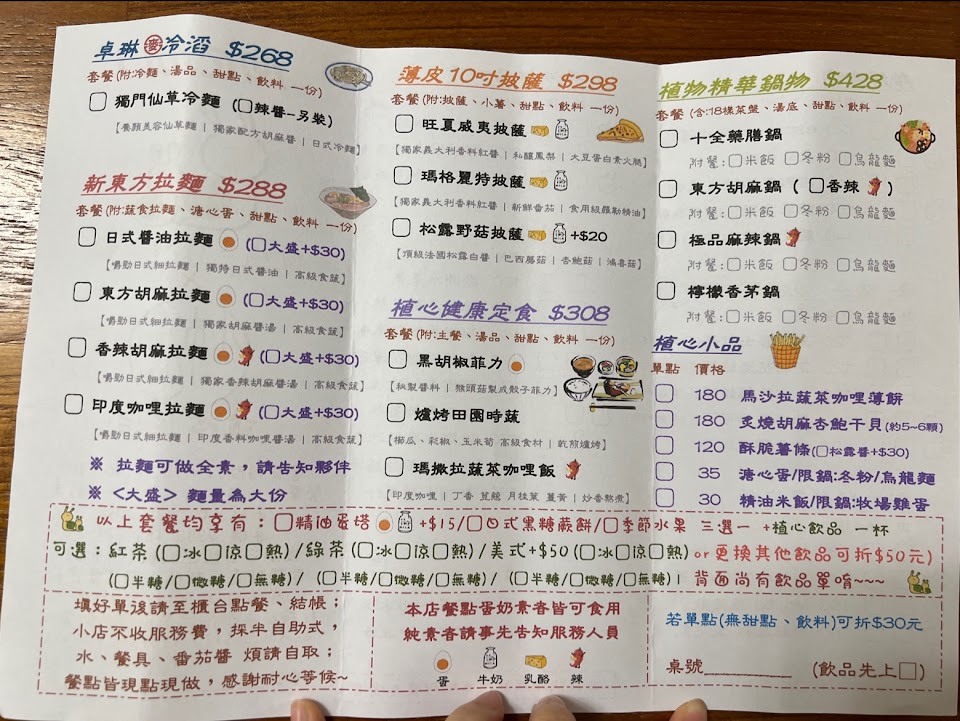 卓琳麥冷滔 $268
套餐(附:冷麵、湯品、甜點、飲料 一份)
獨門仙草冷麵 (□辣醬-另裝)
【養顏美容仙草麵 | 獨家配方胡麻醬 | 日式冷麵】
新東方拉麵 $288
套餐(附:蔬食拉麵、溏心蛋、甜點、飲料 一份)
□ 日式醬油拉麵 (□大盛+$30)
【嚼勁日式細拉麵 | 獨特日式醬油 | 高級食蔬】
□ 東方胡麻拉麵 (□大盛+$30)
【嚼勁日式細拉麵 | 獨家胡麻醬湯 | 高級食蔬】
□ 香辣胡麻拉麵 (□大盛+$30)
【嚼勁日式細拉麵 | 獨家香辣胡麻醬湯 | 高級食蔬】
□ 印度咖哩拉麵 (□大盛+$30)
【嚼勁日式細拉麵 | 印度香料咖哩醬湯 | 高級食蔬】
※ 拉麵可做全素，請告知夥伴
※ <大盛> 麵量為大份
薄皮10吋披薩 $298
套餐(附:披薩、小薯、甜點、飲料 一份)
□ 旺夏威夷披薩
【獨家義大利香料紅醬 | 私釀鳳梨 | 大豆蛋白素火腿】
□ 瑪格麗特披薩
【獨家義大利香料紅醬 | 新鮮番茄 | 食用級羅勒精油】
□ 松露野菇披薩 +$20
【頂級法國松露白醬 | 巴西蘑菇 | 杏鮑菇 | 鴻喜菇】
植心健康定食 $308
套餐(附:主餐、湯品、甜點、飲料 一份)
□ 黑胡椒菲力
【秘製醬料 | 猴頭菇製成骰子菲力】
□ 爐烤田園時蔬
【櫛瓜、彩椒、玉米筍 高級食材 | 乾煎爐烤】
□ 瑪撒拉蔬菜咖哩飯
【印度咖哩 | 丁香 荳蔻 月桂葉 薑黃 | 炒香熬煮】
植物精華鍋物 $428
套餐 (含:18樣菜盤、湯底、甜點、飲料 一份)
□ 十全藥膳鍋
附餐:□米飯 □冬粉 □烏龍麵
□ 東方胡麻鍋 ( □香辣 )
附餐:□米飯 □冬粉 □烏龍麵
□ 極品麻辣鍋
附餐:□米飯 □冬粉 □烏龍麵
□ 檸檬香茅鍋
附餐:□米飯 □冬粉 □烏龍麵
植心小品
單點 價格
□ 180 馬沙拉蔬菜咖哩薄餅
□ 180 炙燒胡麻杏鮑干貝(約5~6顆)
□ 120 酥脆薯條(□松露醬+$30)
□ 35 溏心蛋/限鍋:冬粉/烏龍麵
□ 30 精油米飯/限鍋:牧場雞蛋
以上套餐均享有：□精油蛋塔 +$15/□日式黑糖蕨餅/□季節水果 三選一 +植心飲品 一杯
可選：紅茶(□冰□涼□熱)/綠茶(□冰□涼□熱)/美式+$50(□冰□涼□熱) or更換其他飲品可折$50元)
(□半糖/□微糖/□無糖)/ (□半糖/□微糖/□無糖)/ (□半糖/□微糖/□無糖)| 背面尚有飲品單唷~~~
填好單後請至櫃台點餐、結帳；
小店不收服務費，採半自助式，
水、餐具、番茄醬 煩請自取；
餐點皆現點現做，感謝耐心等候~
本店餐點蛋奶素者皆可食用
純素者請事先告知服務人員
蛋 牛奶 乳酪 辣
若單點(無甜點、飲料)可折$30元
桌號________ (飲品先上□)